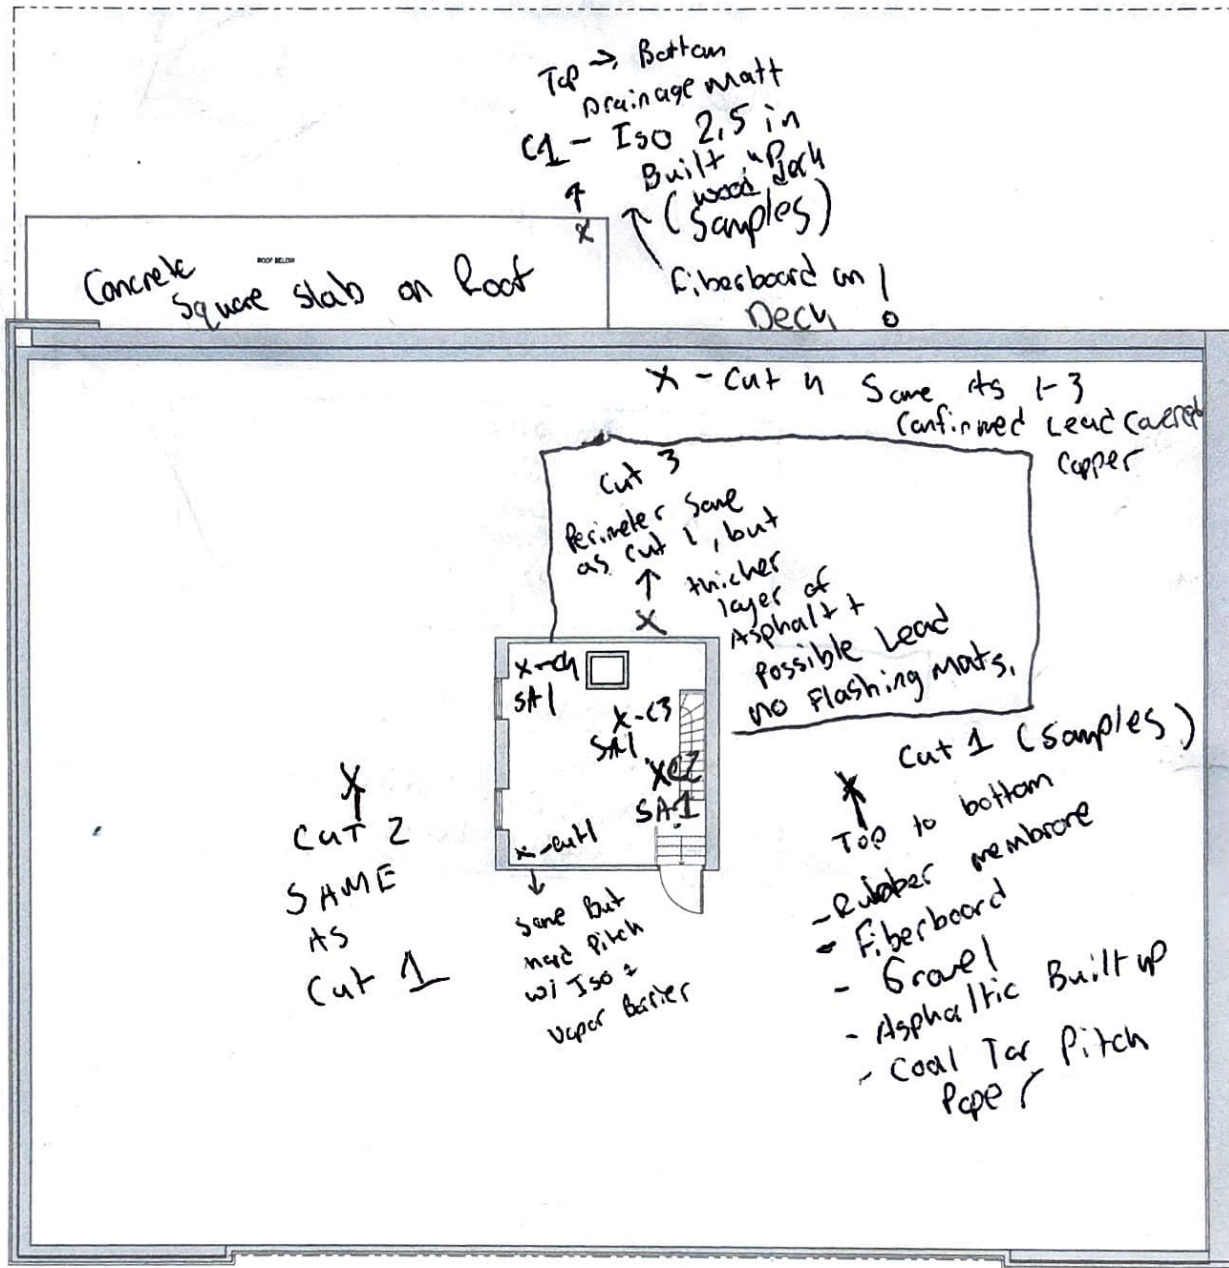 Top → Bottom
Drainage Matt
C1 - Iso 2,5 in
Built up
wood Deck
(Samples)
Fiberboard on !
Deck
Concrete
ROOF BELOW
Square Slab on Roof
X - Cut 4 Same As 1-3
Confirmed Lead Covered
Copper
Cut 3
Perimeter Same
as Cut 1, but
thicker
layer of
Asphalt +
Possible Lead
no Flashing Mats.
X-C4
SA1
X-C3
SA1
XC2
SA1
X-Cut1
Same But
hard Pitch
w/ Iso +
Vapor Barier
X
CuT 2
SAME
AS
Cut 1
Cut 1 (Samples)
X
Top to bottom
- Rubber membrane
- Fiberboard
- Gravel
- Asphaltic Built up
- Coal Tar Pitch
Paper